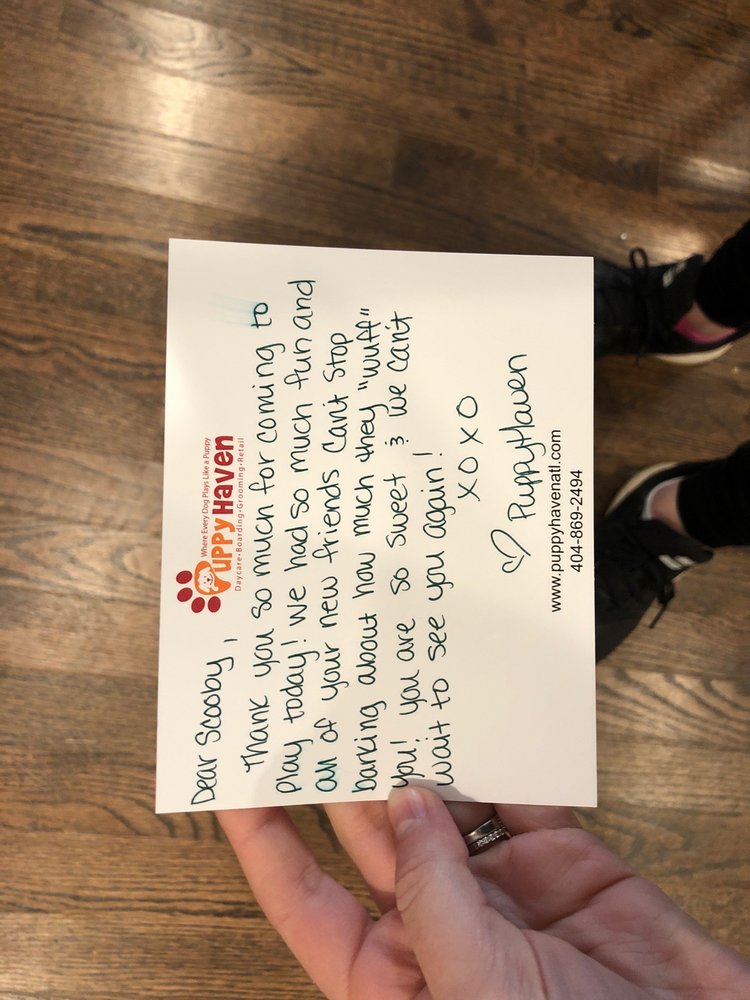 Where Every Dog Plays Like a Puppy
PUPPY HAVEN
Daycare•Boarding•Grooming•Retail
Dear Scooby,
Thank you so much for coming to
play today! We had so much fun and
all of your new friends can't stop
barking about how much they "wuff"
you! you are so sweet & we can't
wait to see you again!
XOXO
♡ PuppyHaven
www.puppyhavenatl.com
404-869-2494